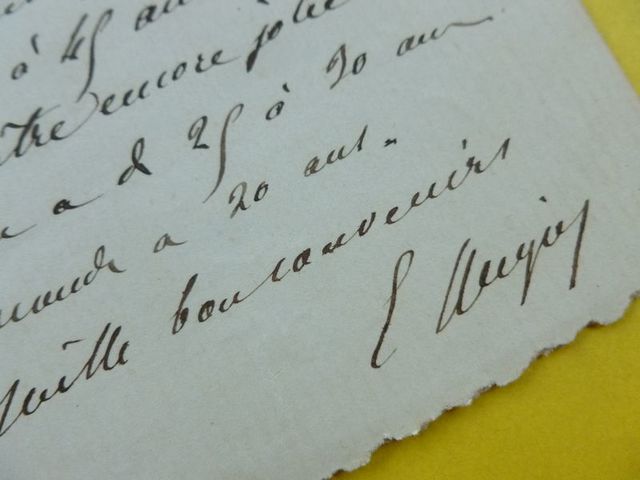 à 45 ans
être encore jolie
a de 25 à 30 ans
monde a 20 ans.
Mille bons souvenirs
E Augier